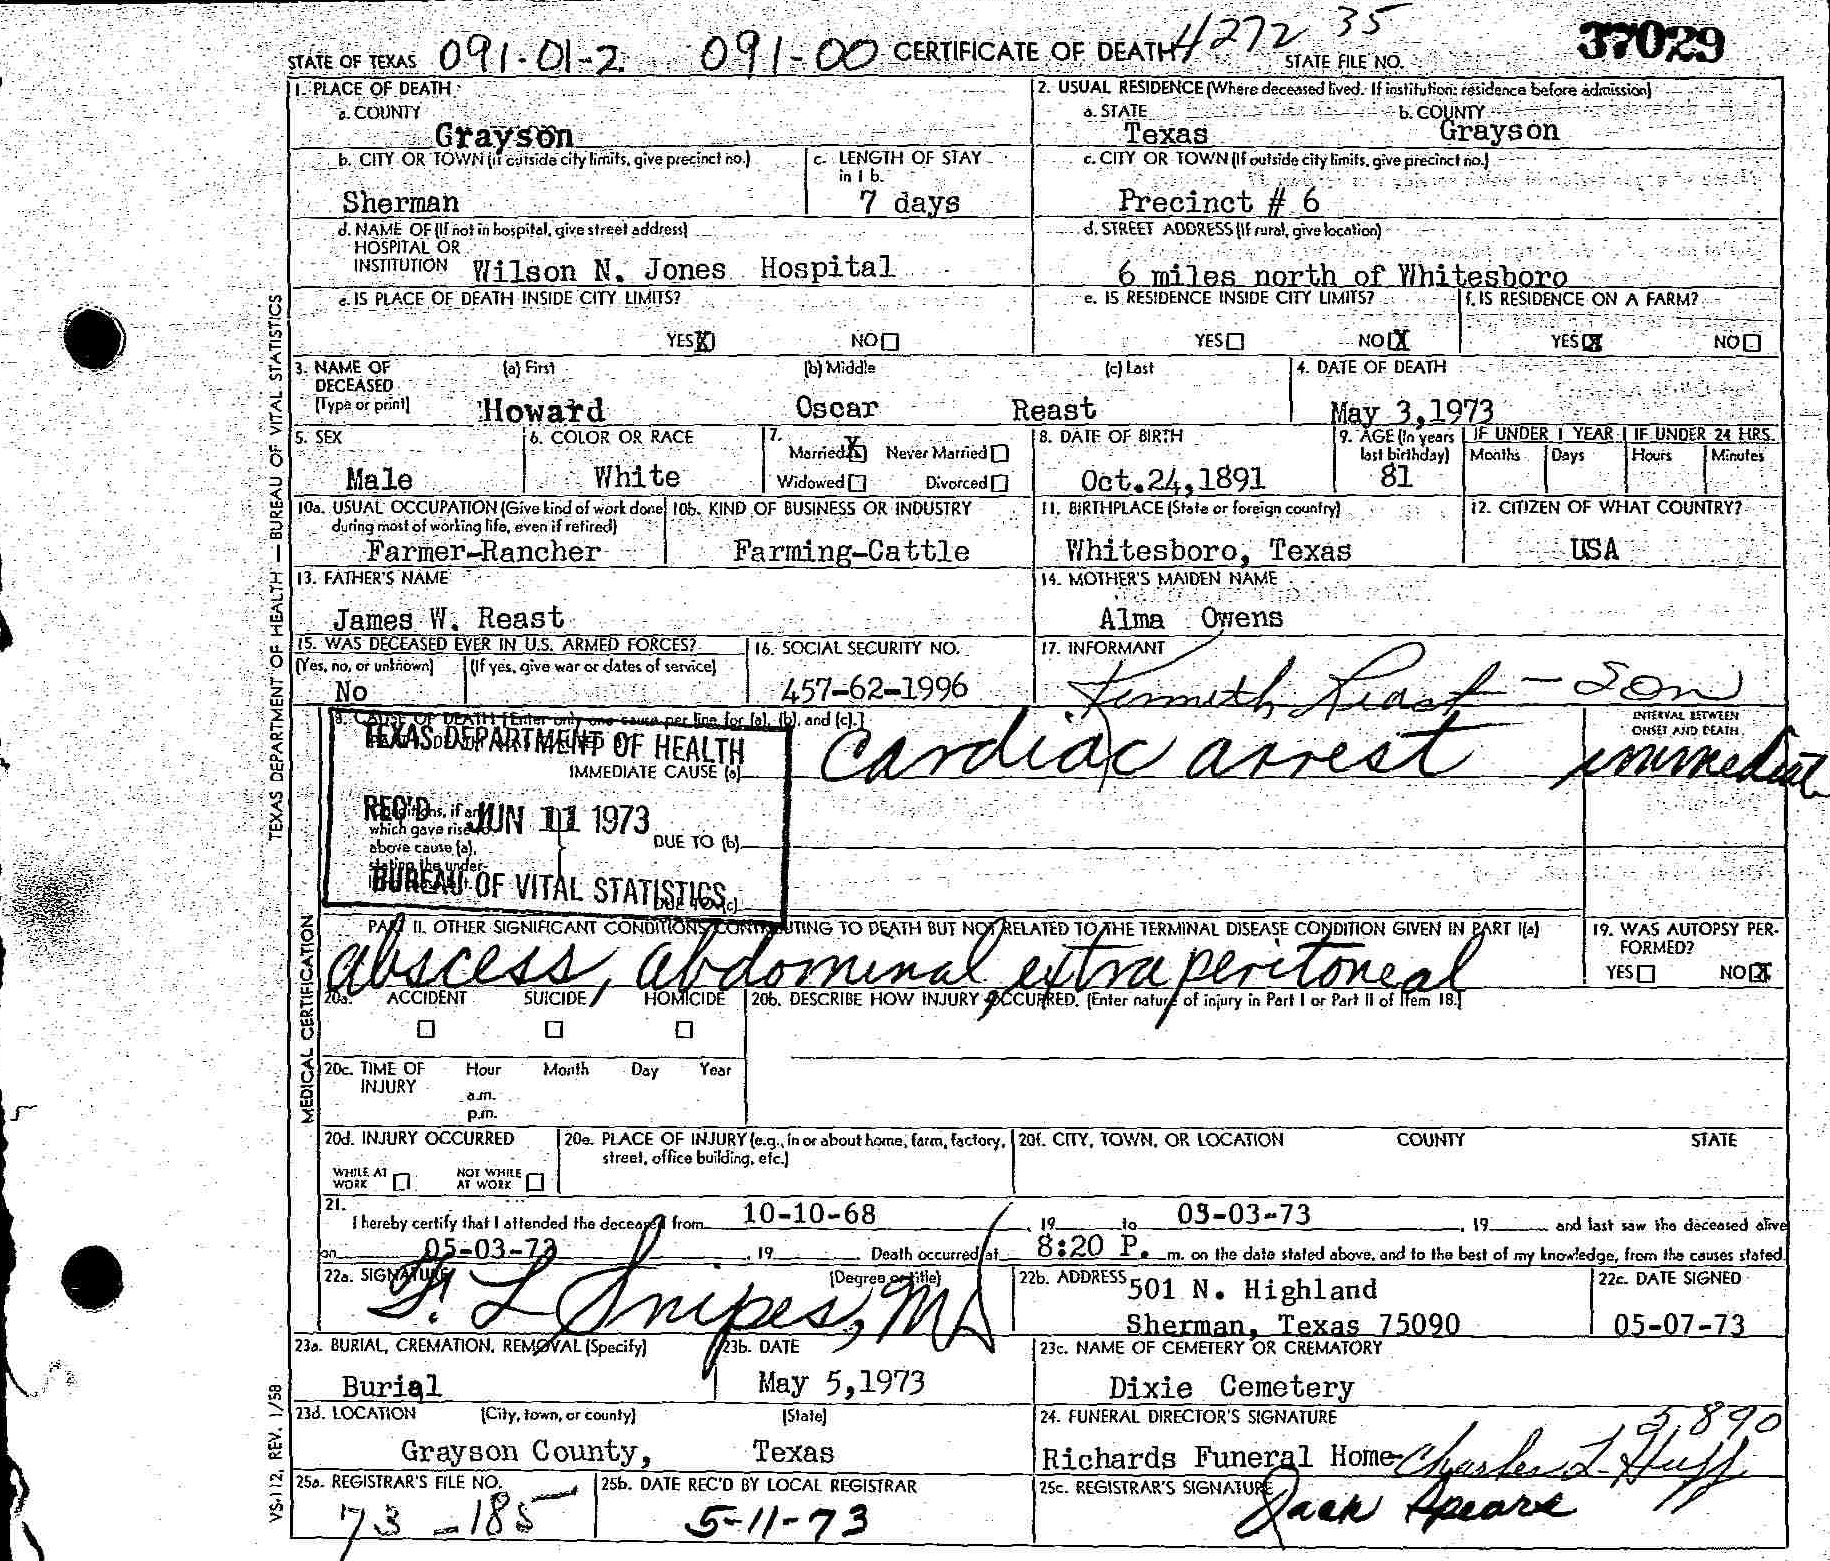 STATE OF TEXAS 091-01-2 091-00 CERTIFICATE OF DEATH 4272 35 STATE FILE NO. 37029
1. PLACE OF DEATH
a. COUNTY
Grayson
2. USUAL RESIDENCE (Where deceased lived. If institution: residence before admission)
a. STATE b. COUNTY
Texas Grayson
b. CITY OR TOWN (If outside city limits, give precinct no.)
Sherman
c. LENGTH OF STAY
in 1 b.
7 days
c. CITY OR TOWN (If outside city limits, give precinct no.)
Precinct # 6
d. NAME OF (If not in hospital, give street address)
HOSPITAL OR
INSTITUTION Wilson N. Jones Hospital
d. STREET ADDRESS (If rural, give location)
6 miles north of Whitesboro
e. IS PLACE OF DEATH INSIDE CITY LIMITS?
YES X NO
e. IS RESIDENCE INSIDE CITY LIMITS?
YES NO X
f. IS RESIDENCE ON A FARM?
YES X NO
3. NAME OF
DECEASED
(Type or print)
(a) First (b) Middle (c) Last
Howard Oscar Reast
4. DATE OF DEATH
May 3,1973
5. SEX
Male
6. COLOR OR RACE
White
7.
Married X Never Married
Widowed Divorced
8. DATE OF BIRTH
Oct.24,1891
9. AGE (In years
last birthday)
81
IF UNDER 1 YEAR
Months Days
IF UNDER 24 HRS.
Hours Minutes
10a. USUAL OCCUPATION (Give kind of work done
during most of working life, even if retired)
Farmer-Rancher
10b. KIND OF BUSINESS OR INDUSTRY
Farming-Cattle
11. BIRTHPLACE (State or foreign country)
Whitesboro, Texas
12. CITIZEN OF WHAT COUNTRY?
USA
13. FATHER'S NAME
James W. Reast
14. MOTHER'S MAIDEN NAME
Alma Owens
15. WAS DECEASED EVER IN U.S. ARMED FORCES?
(Yes, no, or unknown) (If yes, give war or dates of service)
No
16. SOCIAL SECURITY NO.
457-62-1996
17. INFORMANT
Kenneth Reast - Son
18. CAUSE OF DEATH [Enter only one cause per line for (a), (b), and (c).]
TEXAS DEPARTMENT OF HEALTH
IMMEDIATE CAUSE (a) cardiac arrest
INTERVAL BETWEEN
ONSET AND DEATH
immediate
REC'D JUN 11 1973
Conditions, if any
which gave rise to
above cause (a),
stating the under-
DUE TO (b)
BUREAU OF VITAL STATISTICS
DUE TO (c)
PART II. OTHER SIGNIFICANT CONDITIONS CONTRIBUTING TO DEATH BUT NOT RELATED TO THE TERMINAL DISEASE CONDITION GIVEN IN PART I(a)
abscess, abdominal, extraperitoneal
19. WAS AUTOPSY PER-
FORMED?
YES NO X
20a. ACCIDENT SUICIDE HOMICIDE
20b. DESCRIBE HOW INJURY OCCURRED. (Enter nature of injury in Part I or Part II of Item 18.)
20c. TIME OF
INJURY
Hour Month Day Year
a.m.
p.m.
20d. INJURY OCCURRED
WHILE AT
WORK
NOT WHILE
AT WORK
20e. PLACE OF INJURY (e.g., in or about home, farm, factory,
street, office building, etc.)
20f. CITY, TOWN, OR LOCATION COUNTY STATE
21.
I hereby certify that I attended the deceased from 10-10-68, 19 to 05-03-73, 19 and last saw the deceased alive
on 05-03-73, 19 Death occurred at 8:20 P. m. on the date stated above, and to the best of my knowledge, from the causes stated.
22a. SIGNATURE (Degree or title)
L Snipes, MD
22b. ADDRESS 501 N. Highland
Sherman, Texas 75090
22c. DATE SIGNED
05-07-73
23a. BURIAL, CREMATION, REMOVAL (Specify)
Burial
23b. DATE
May 5,1973
23c. NAME OF CEMETERY OR CREMATORY
Dixie Cemetery
23d. LOCATION (City, town, or county) (State)
Grayson County, Texas
24. FUNERAL DIRECTOR'S SIGNATURE 5890
Richards Funeral Home- Charles L. Huff
25a. REGISTRAR'S FILE NO.
73 - 185
25b. DATE REC'D BY LOCAL REGISTRAR
5-11-73
25c. REGISTRAR'S SIGNATURE
Jack Speare
TEXAS DEPARTMENT OF HEALTH — BUREAU OF VITAL STATISTICS
MEDICAL CERTIFICATION
VS-112, REV. 1/58